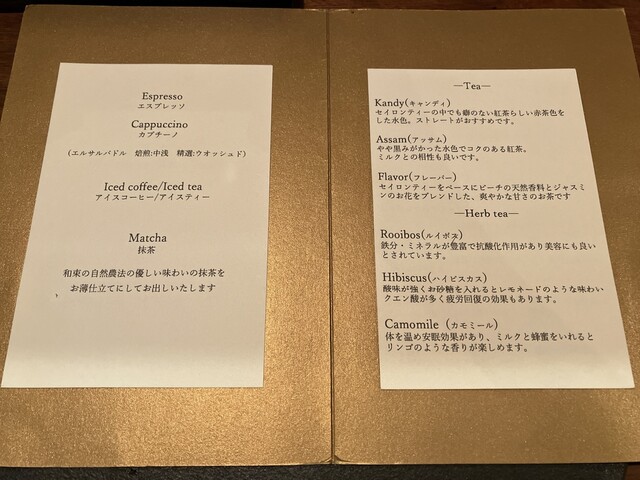 Espresso
エスプレッソ
Cappuccino
カプチーノ
(エルサルバドル 焙煎:中浅 精選:ウオッシュド)
Iced coffee/Iced tea
アイスコーヒー/アイスティー
Matcha
抹茶
和束の自然農法の優しい味わいの抹茶を
お薄仕立てにしてお出しいたします
—Tea—
Kandy(キャンディ)
セイロンティーの中でも癖のない紅茶らしい赤茶色を
した水色。ストレートがおすすめです。
Assam(アッサム)
やや黒みがかった水色でコクのある紅茶、
ミルクとの相性も良いです。
Flavor(フレーバー)
セイロンティーをベースにピーチの天然香料とジャスミ
ンのお花をブレンドした、爽やかな甘さのお茶です
—Herb tea—
Rooibos(ルイボス)
鉄分・ミネラルが豊富で抗酸化作用があり美容にも良い
とされています。
Hibiscus(ハイビスカス)
酸味が強くお砂糖を入れるとレモネードのような味わい
クエン酸が多く疲労回復の効果もあります。
Camomile (カモミール)
体を温め安眠効果があり、ミルクと蜂蜜をいれると
リンゴのような香りが楽しめます。